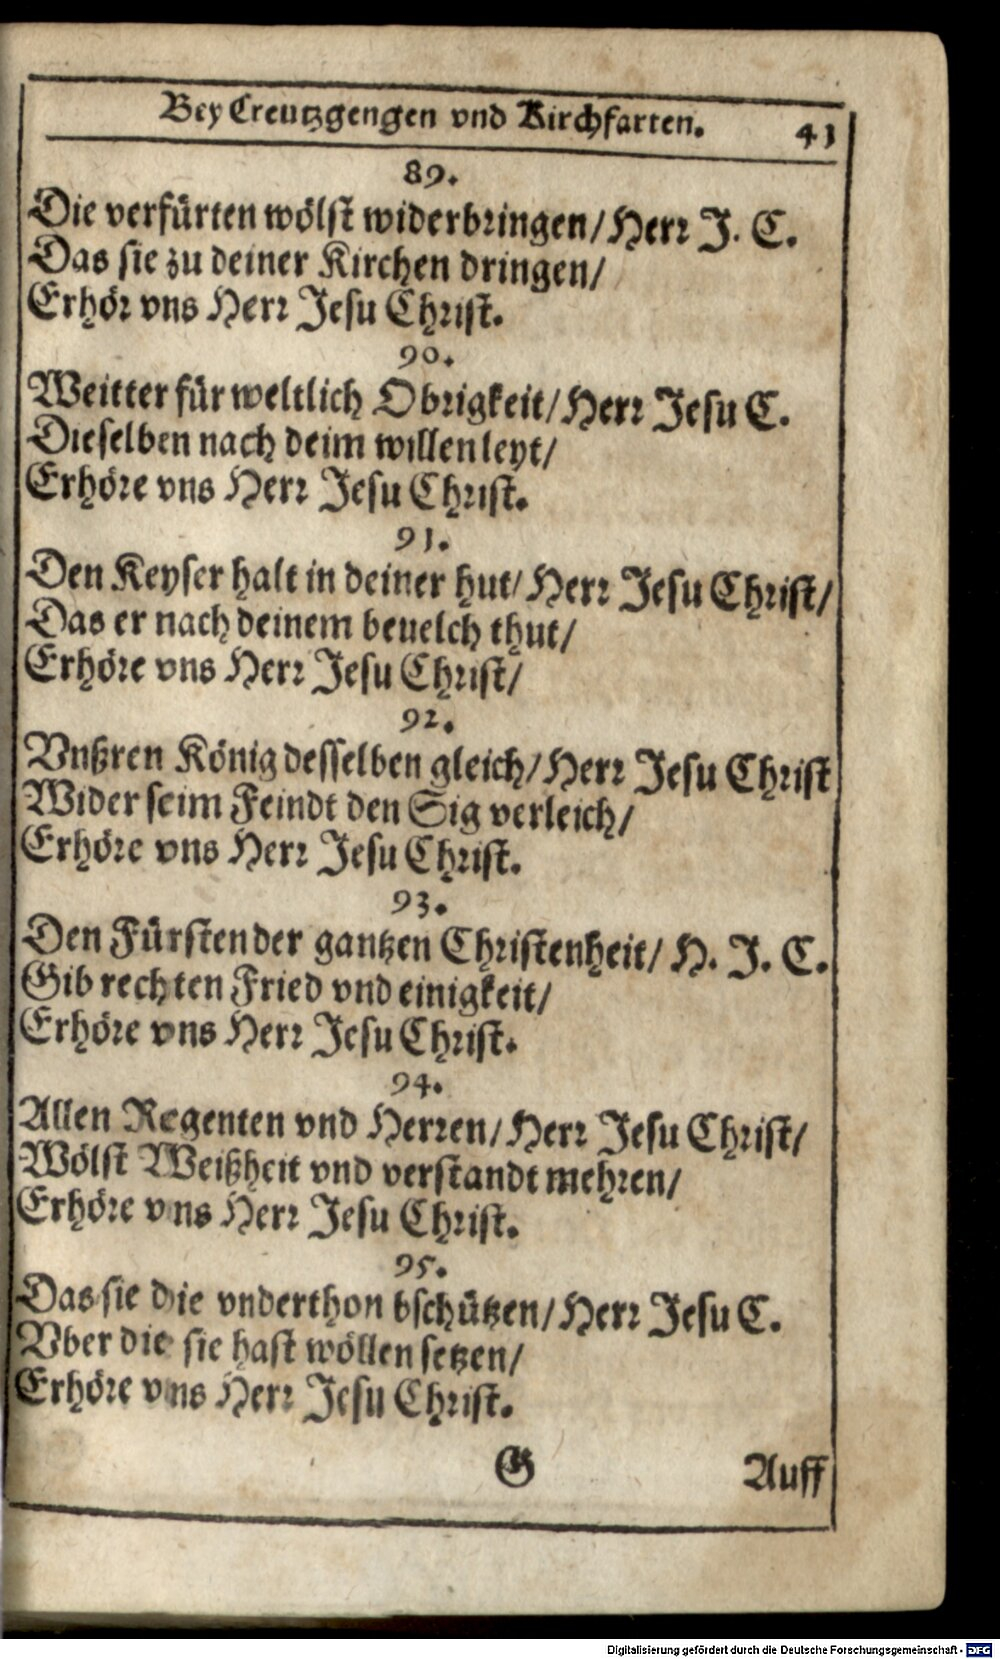 Bey Creutzgengen vnd Kirchfarten. 41
89.
Die verfürten wölst widerbringen/ Herr J. C.
Das sie zu deiner Kirchen dringen/
Erhör vns Herr Jesu Christ.
90.
Weitter für weltlich Obrigkeit/ Herr Jesu C.
Dieselben nach deim willen leyt/
Erhöre vns Herr Jesu Christ.
91.
Den Keyser halt in deiner hut/ Herr Jesu Christ/
Das er nach deinem beuelch thut/
Erhöre vns Herr Jesu Christ/
92.
Vnßren König desselben gleich/ Herr Jesu Christ
Wider seim Feindt den Sig verleich/
Erhöre vns Herr Jesu Christ.
93.
Den Fürsten der gantzen Christenheit/ H. J. C.
Gib rechten Fried vnd einigkeit/
Erhöre vns Herr Jesu Christ.
94.
Allen Regenten vnd Herren/ Herr Jesu Christ/
Wölst Weißheit vnd verstandt mehren/
Erhöre vns Herr Jesu Christ.
95.
Das sie die vnderthon bschützen/ Herr Jesu C.
Vber die sie hast wöllen setzen/
Erhöre vns Herr Jesu Christ.
G Auff
Digitalisierung gefördert durch die Deutsche Forschungsgemeinschaft - DFG